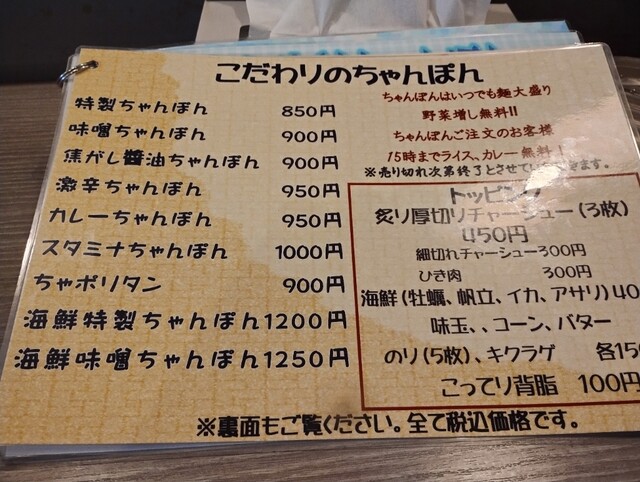 こだわりのちゃんぽん
特製ちゃんぽん 850円
味噌ちゃんぽん 900円
焦がし醬油ちゃんぽん 900円
激辛ちゃんぽん 950円
カレーちゃんぽん 950円
スタミナちゃんぽん 1000円
ちゃポリタン 900円
海鮮特製ちゃんぽん1200円
海鮮味噌ちゃんぽん1250円
ちゃんぽんはいつでも麵大盛り
野菜増し無料!!
ちゃんぽんご注文のお客様
15時までライス、カレー無料!
※売り切れ次第終了とさせていただきます。
トッピング
炙り厚切りチャーシュー(3枚)
450円
細切れチャーシュー300円
ひき肉 300円
海鮮(牡蠣、帆立、イカ、アサリ)40
味玉、、コーン、バター
のり(5枚)、キクラゲ 各150
こってり背脂 100円
※裏面もご覧ください。全て税込価格です。